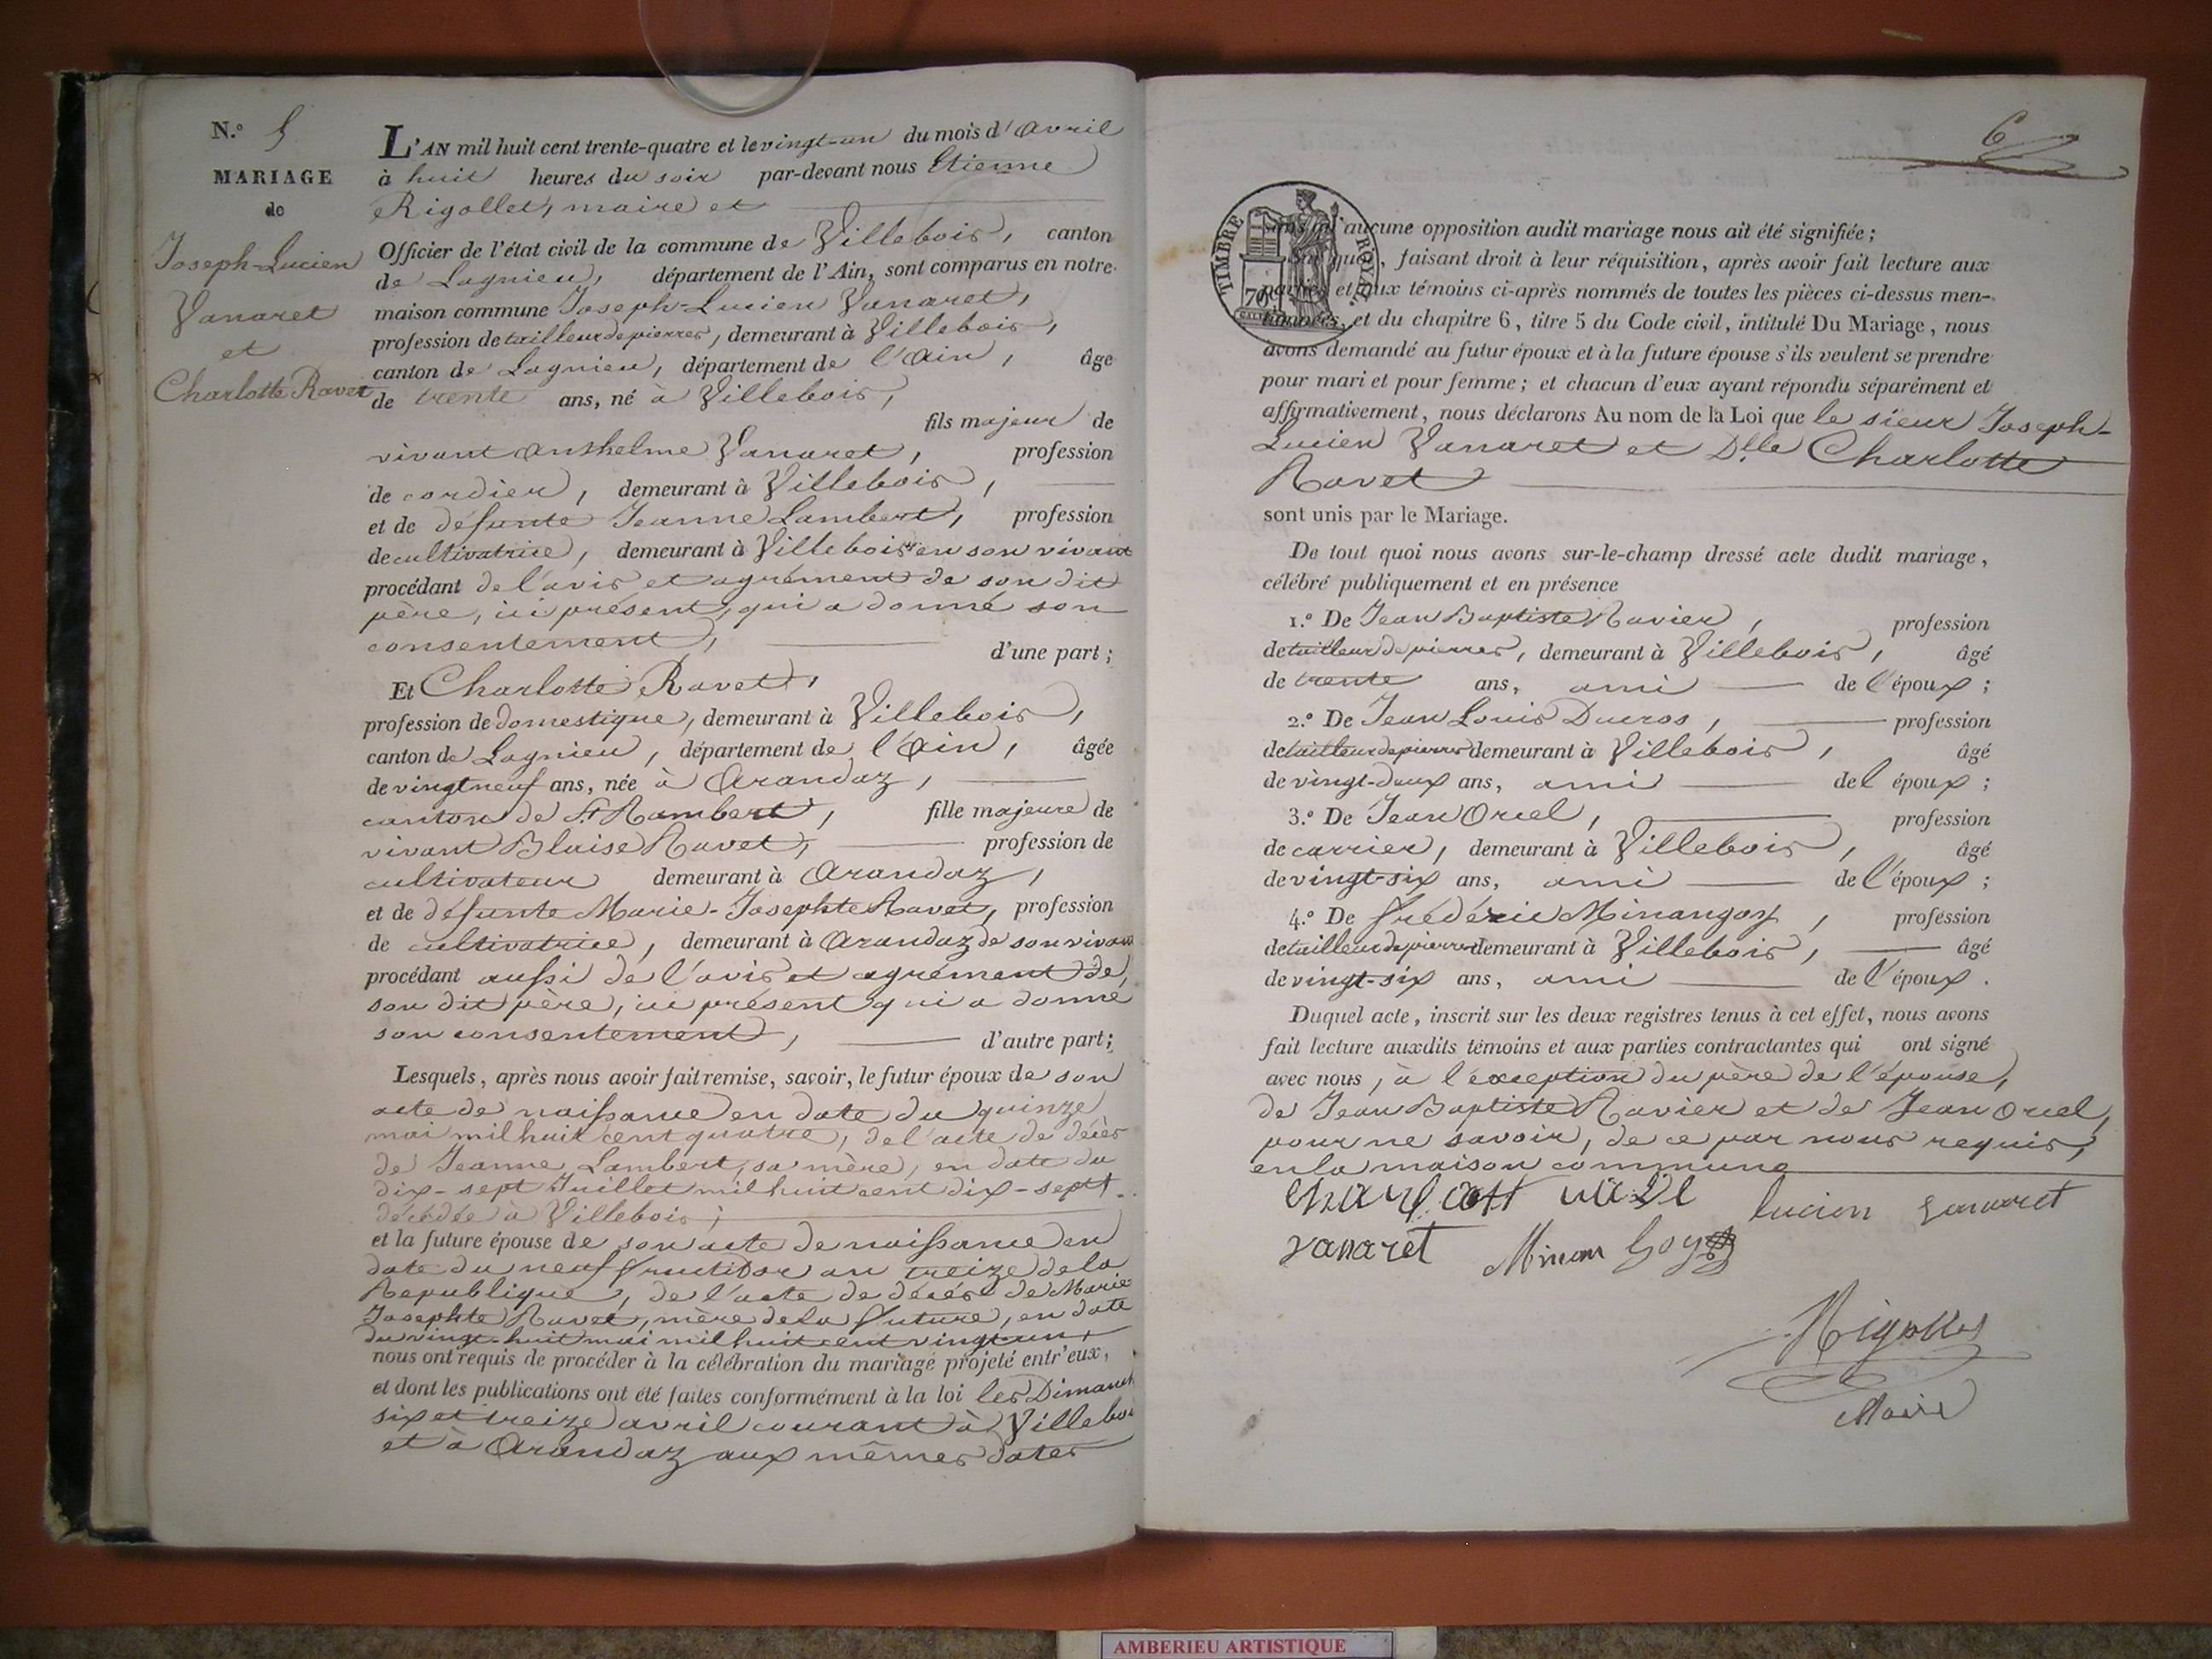 N.º 5
MARIAGE
de
Joseph-Lucien
Vanaret
et
Charlotte Ravet
L'AN mil huit cent trente-quatre et le vingt-un du mois d'avril
à huit heures du soir par-devant nous Etienne
Rigollet, maire et
Officier de l'état civil de la commune de Villebois, canton
de Lagnieu, département de l'Ain, sont comparus en notre
maison commune Joseph-Lucien Vanaret,
profession de tailleur de pierres, demeurant à Villebois,
canton de Lagnieu, département de l'Ain, âge
de trente ans, né à Villebois,
fils majeur de
vivant Anthelme Vanaret, profession
de cordier, demeurant à Villebois,
et de défunte Jeanne Lambert, profession
de cultivatrice, demeurant à Villebois en son vivant
procédant de l'avis et agrément de son dit
père, ici présent, qui a donné son
consentement, d'une part;
Et Charlotte Ravet,
profession de domestique, demeurant à Villebois,
canton de Lagnieu, département de l'Ain, âgée
de vingt neuf ans, née à Arandaz,
canton de St Rambert, fille majeure de
vivant Blaise Ravet, profession de
cultivateur demeurant à Arandaz,
et de défunte Marie-Josephte Ravet, profession
de cultivatrice, demeurant à Arandaz de son vivant
procédant aussi de l'avis et agrément de
son dit père, ici présent qui a donné
son consentement, d'autre part;
Lesquels, après nous avoir fait remise, savoir, le futur époux de son
acte de naissance en date du quinze
mai mil huit cent quatre, de l'acte de décès
de Jeanne Lambert, sa mère, en date du
dix-sept Juillet mil huit cent dix-sept
décédée à Villebois;
et la future épouse de son acte de naissance en
date du neuf fructidor an treize de la
République, de l'acte de décès de Marie
Josephte Ravet, mère de la future, en date
du vingt-huit mai mil huit cent vingt un,
nous ont requis de procéder à la célébration du mariage projeté entr'eux,
et dont les publications ont été faites conformément à la loi les Dimanch
six et treize avril courant à Villebo
et à Arandaz aux mêmes dates
6
TIMBRE ROYAL
70
aucune opposition audit mariage nous ait été signifiée;
, faisant droit à leur réquisition, après avoir fait lecture aux
parties et aux témoins ci-après nommés de toutes les pièces ci-dessus men-
tionnées, et du chapitre 6, titre 5 du Code civil, intitulé Du Mariage, nous
avons demandé au futur époux et à la future épouse s'ils veulent se prendre
pour mari et pour femme; et chacun d'eux ayant répondu séparément et
affirmativement, nous déclarons Au nom de la Loi que le sieur Joseph-
Lucien Vanaret et Dlle Charlotte
Ravet
sont unis par le Mariage.
De tout quoi nous avons sur-le-champ dressé acte dudit mariage,
célébré publiquement et en présence
1.º De Jean Baptiste Ravier, profession
de tailleur de pierres, demeurant à Villebois, âgé
de trente ans, ami de l'époux;
2.º De Jean Louis Ducros, profession
de tailleur de pierres demeurant à Villebois, âgé
de vingt-deux ans, ami de l époux;
3.º De Jean Oriel, profession
de carrier, demeurant à Villebois, âgé
de vingt-six ans, ami de l'époux;
4.º De frédéric Minangoy, profession
de tailleur de pierres demeurant à Villebois, âgé
de vingt-six ans, ami de l'époux.
Duquel acte, inscrit sur les deux registres tenus à cet effet, nous avons
fait lecture auxdits témoins et aux parties contractantes qui ont signé
avec nous, à l'exception du père de l'épouse,
de Jean Baptiste Ravier et de Jean Oriel,
pour ne savoir, de ce par nous requis,
en la maison commune
lucien vanaret
vanaret Minangoy
Rigollet
Maire
AMBERIEU ARTISTIQUE